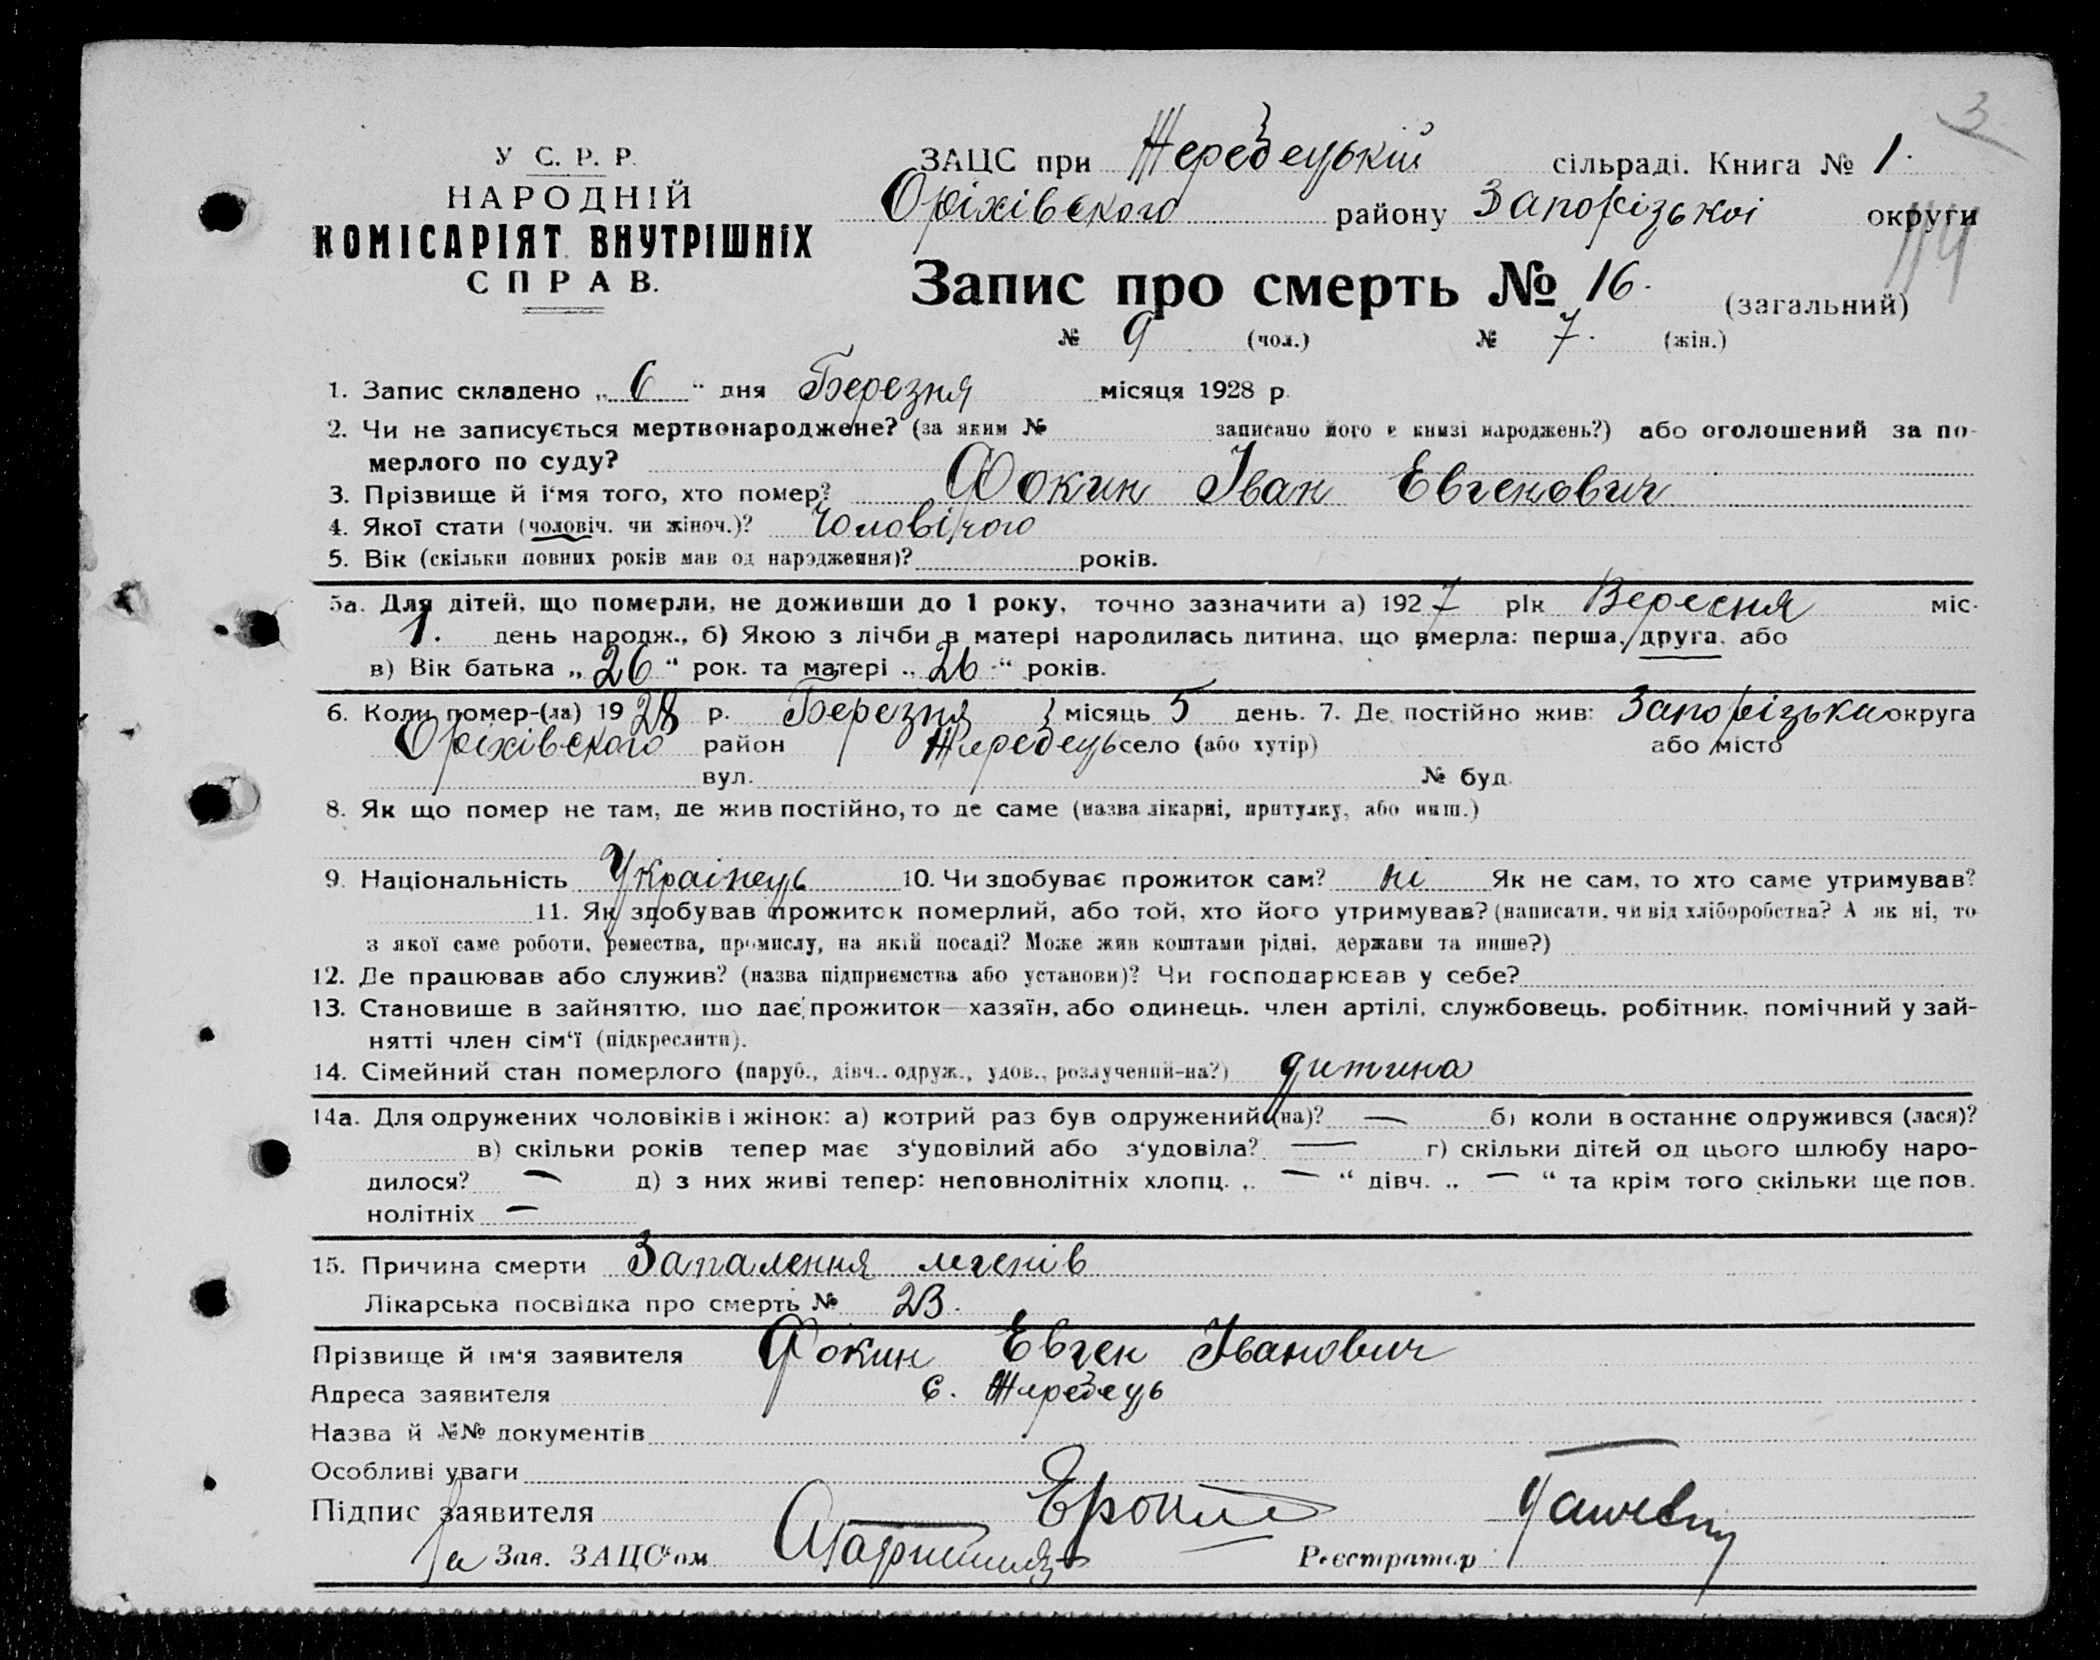 3
У С. Р. Р.
НАРОДНІЙ
КОМІСАРІЯТ ВНУТРІШНІХ
СПРАВ.
ЗАЦС при Жеребецькій сільраді. Книга № 1.
Оріхівського району Запорізької округи
114
Запис про смерть № 16. (загальний)
№ 9 (чол.) № 7. (жін.)
1. Запис складено „ 6 “ дня Березня місяця 1928 р.
2. Чи не записується мертвонароджене? (за яким № записано його в книзі народжень?) або оголошений за по-
мерлого по суду?
3. Прізвище й і‘мя того, хто помер? Фокин Іван Евгенович
4. Якої стати (чоловіч. чи жіноч.)? Чоловічого
5. Вік (скільки повних років мав од народження)? років.
5а. Для дітей, що померли, не доживши до 1 року, точно зазначити а) 1927 рік Вересня міс.
1. день народж., б) Якою з лічби в матері народилась дитина, що вмерла: перша, друга, або
в) Вік батька „ 26 “ рок. та матері „ 26 “ років.
6. Коли помер-(ла) 1928 р. Березня місяць 5 день. 7. Де постійно жив: Запорізька округа
Оріхівского район Жеребець село (або хутір) або місто
вул. № буд.
8. Як що помер не там, де жив постійно, то де саме (назва лікарні, притулку, або инш.)
9. Національність Українець 10. Чи здобуває прожиток сам? ні Як не сам, то хто саме утримував?
11. Як здобував прожиток померлий, або той, хто його утримував? (написати, чи від хліборобства? А як ні, то
з якої саме роботи, ремества, промислу, на якій посаді? Може жив коштами рідні, держави та инше?)
12. Де працював або служив? (назва підприємства або установи)? Чи господарював у себе?
13. Становище в зайняттю, що дає прожиток—хазяїн, або одинець, член артілі, службовець, робітник, помічний у зай-
нятті член сім‘ї (підкреслити).
14. Сімейний стан померлого (паруб., дівч., одруж., удов., розлучений-на?) дитина
14а. Для одружених чоловіків і жінок: а) котрий раз був одружений (на)? — б) коли в останнє одружився (лася)?
в) скільки років тепер має з‘удовілий або з‘удовіла? — г) скільки дітей од цього шлюбу наро-
дилося? — д) з них живі тепер: неповнолітніх хлопц. „ — “ дівч. „ — “ та крім того скільки ще пов.
нолітніх —
15. Причина смерти Запалення легенів
Лікарська посвідка про смерть № 23.
Прізвище й ім‘я заявителя Фокин Евген Іванович
Адреса заявителя с. Жеребець
Назва й №№ документів
Особливі уваги
Підпис заявителя
За Зав. ЗАЦС‘ом Реєстратор